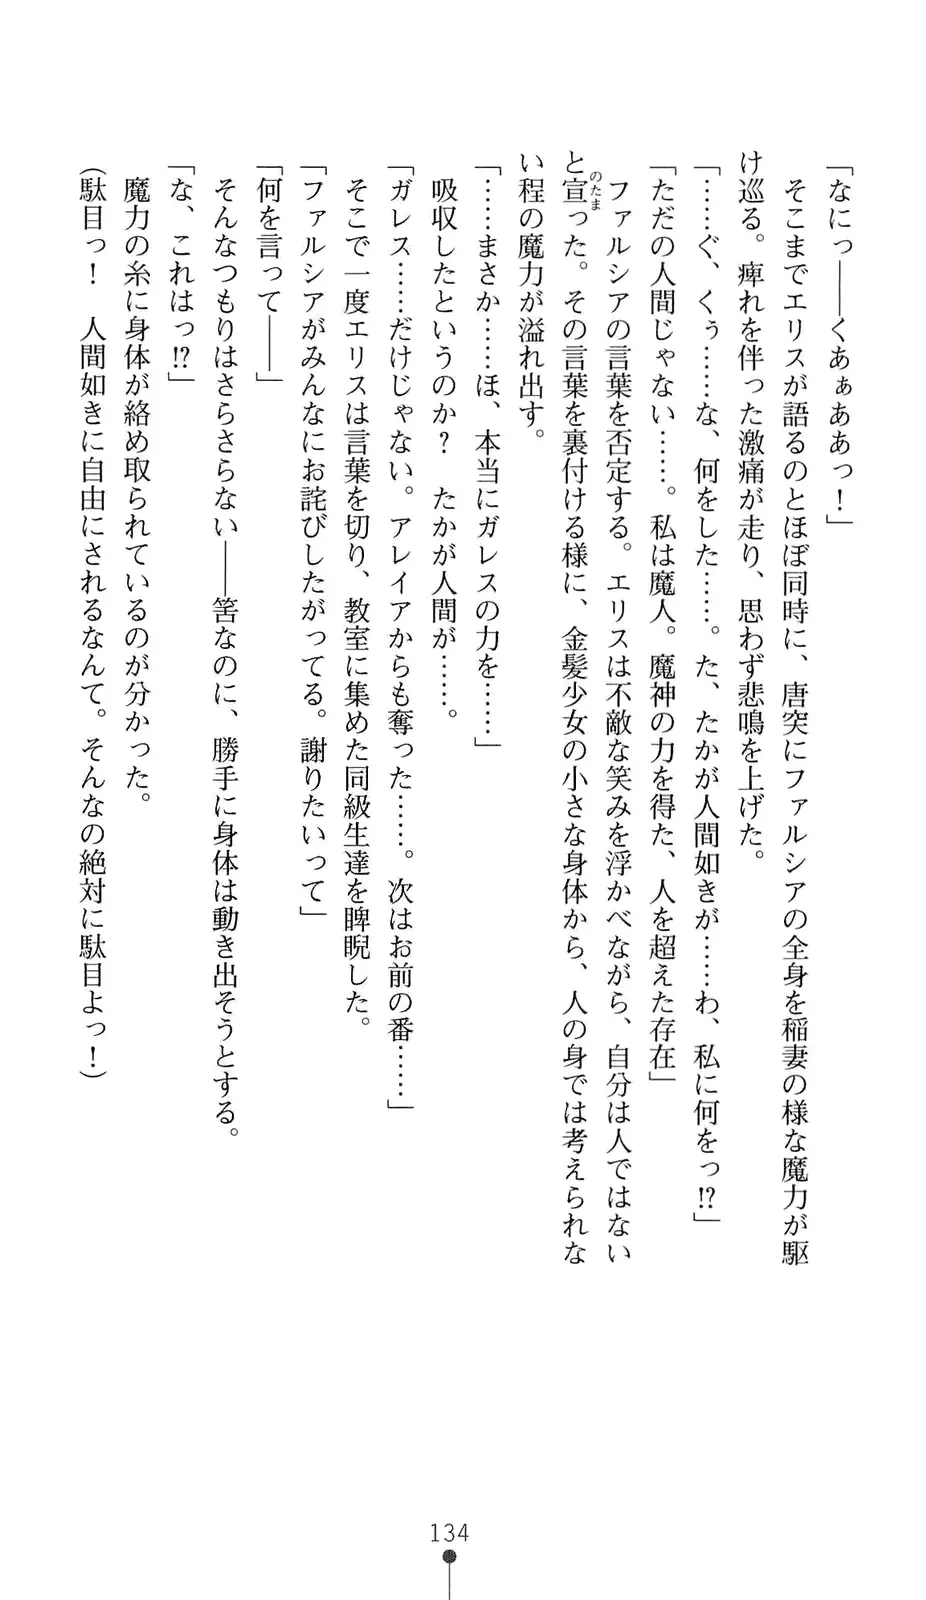 「なにっ――くあぁああっ！」
　そこまでエリスが語るのとほぼ同時に、唐突にファルシアの全身を稲妻の様な魔力が駆
け巡る。痺れを伴った激痛が走り、思わず悲鳴を上げた。
「……ぐ、くぅ……な、何をした……。た、たかが人間如きが……わ、私に何をっ!?」
「ただの人間じゃない……。私は魔人。魔神の力を得た、人を超えた存在」
　ファルシアの言葉を否定する。エリスは不敵な笑みを浮かべながら、自分は人ではない
と宣った。その言葉を裏付ける様に、金髪少女の小さな身体から、人の身では考えられな
のたま
い程の魔力が溢れ出す。
「……まさか……ほ、本当にガレスの力を……」
　吸収したというのか？　たかが人間が……。
「ガレス……だけじゃない。アレイアからも奪った……。次はお前の番……」
　そこで一度エリスは言葉を切り、教室に集めた同級生達を睥睨した。
「ファルシアがみんなにお詫びしたがってる。謝りたいって」
「何を言って――」
　そんなつもりはさらさらない――筈なのに、勝手に身体は動き出そうとする。
「な、これはっ!?」
　魔力の糸に身体が絡め取られているのが分かった。
（駄目っ！　人間如きに自由にされるなんて。そんなの絶対に駄目よっ！）
134